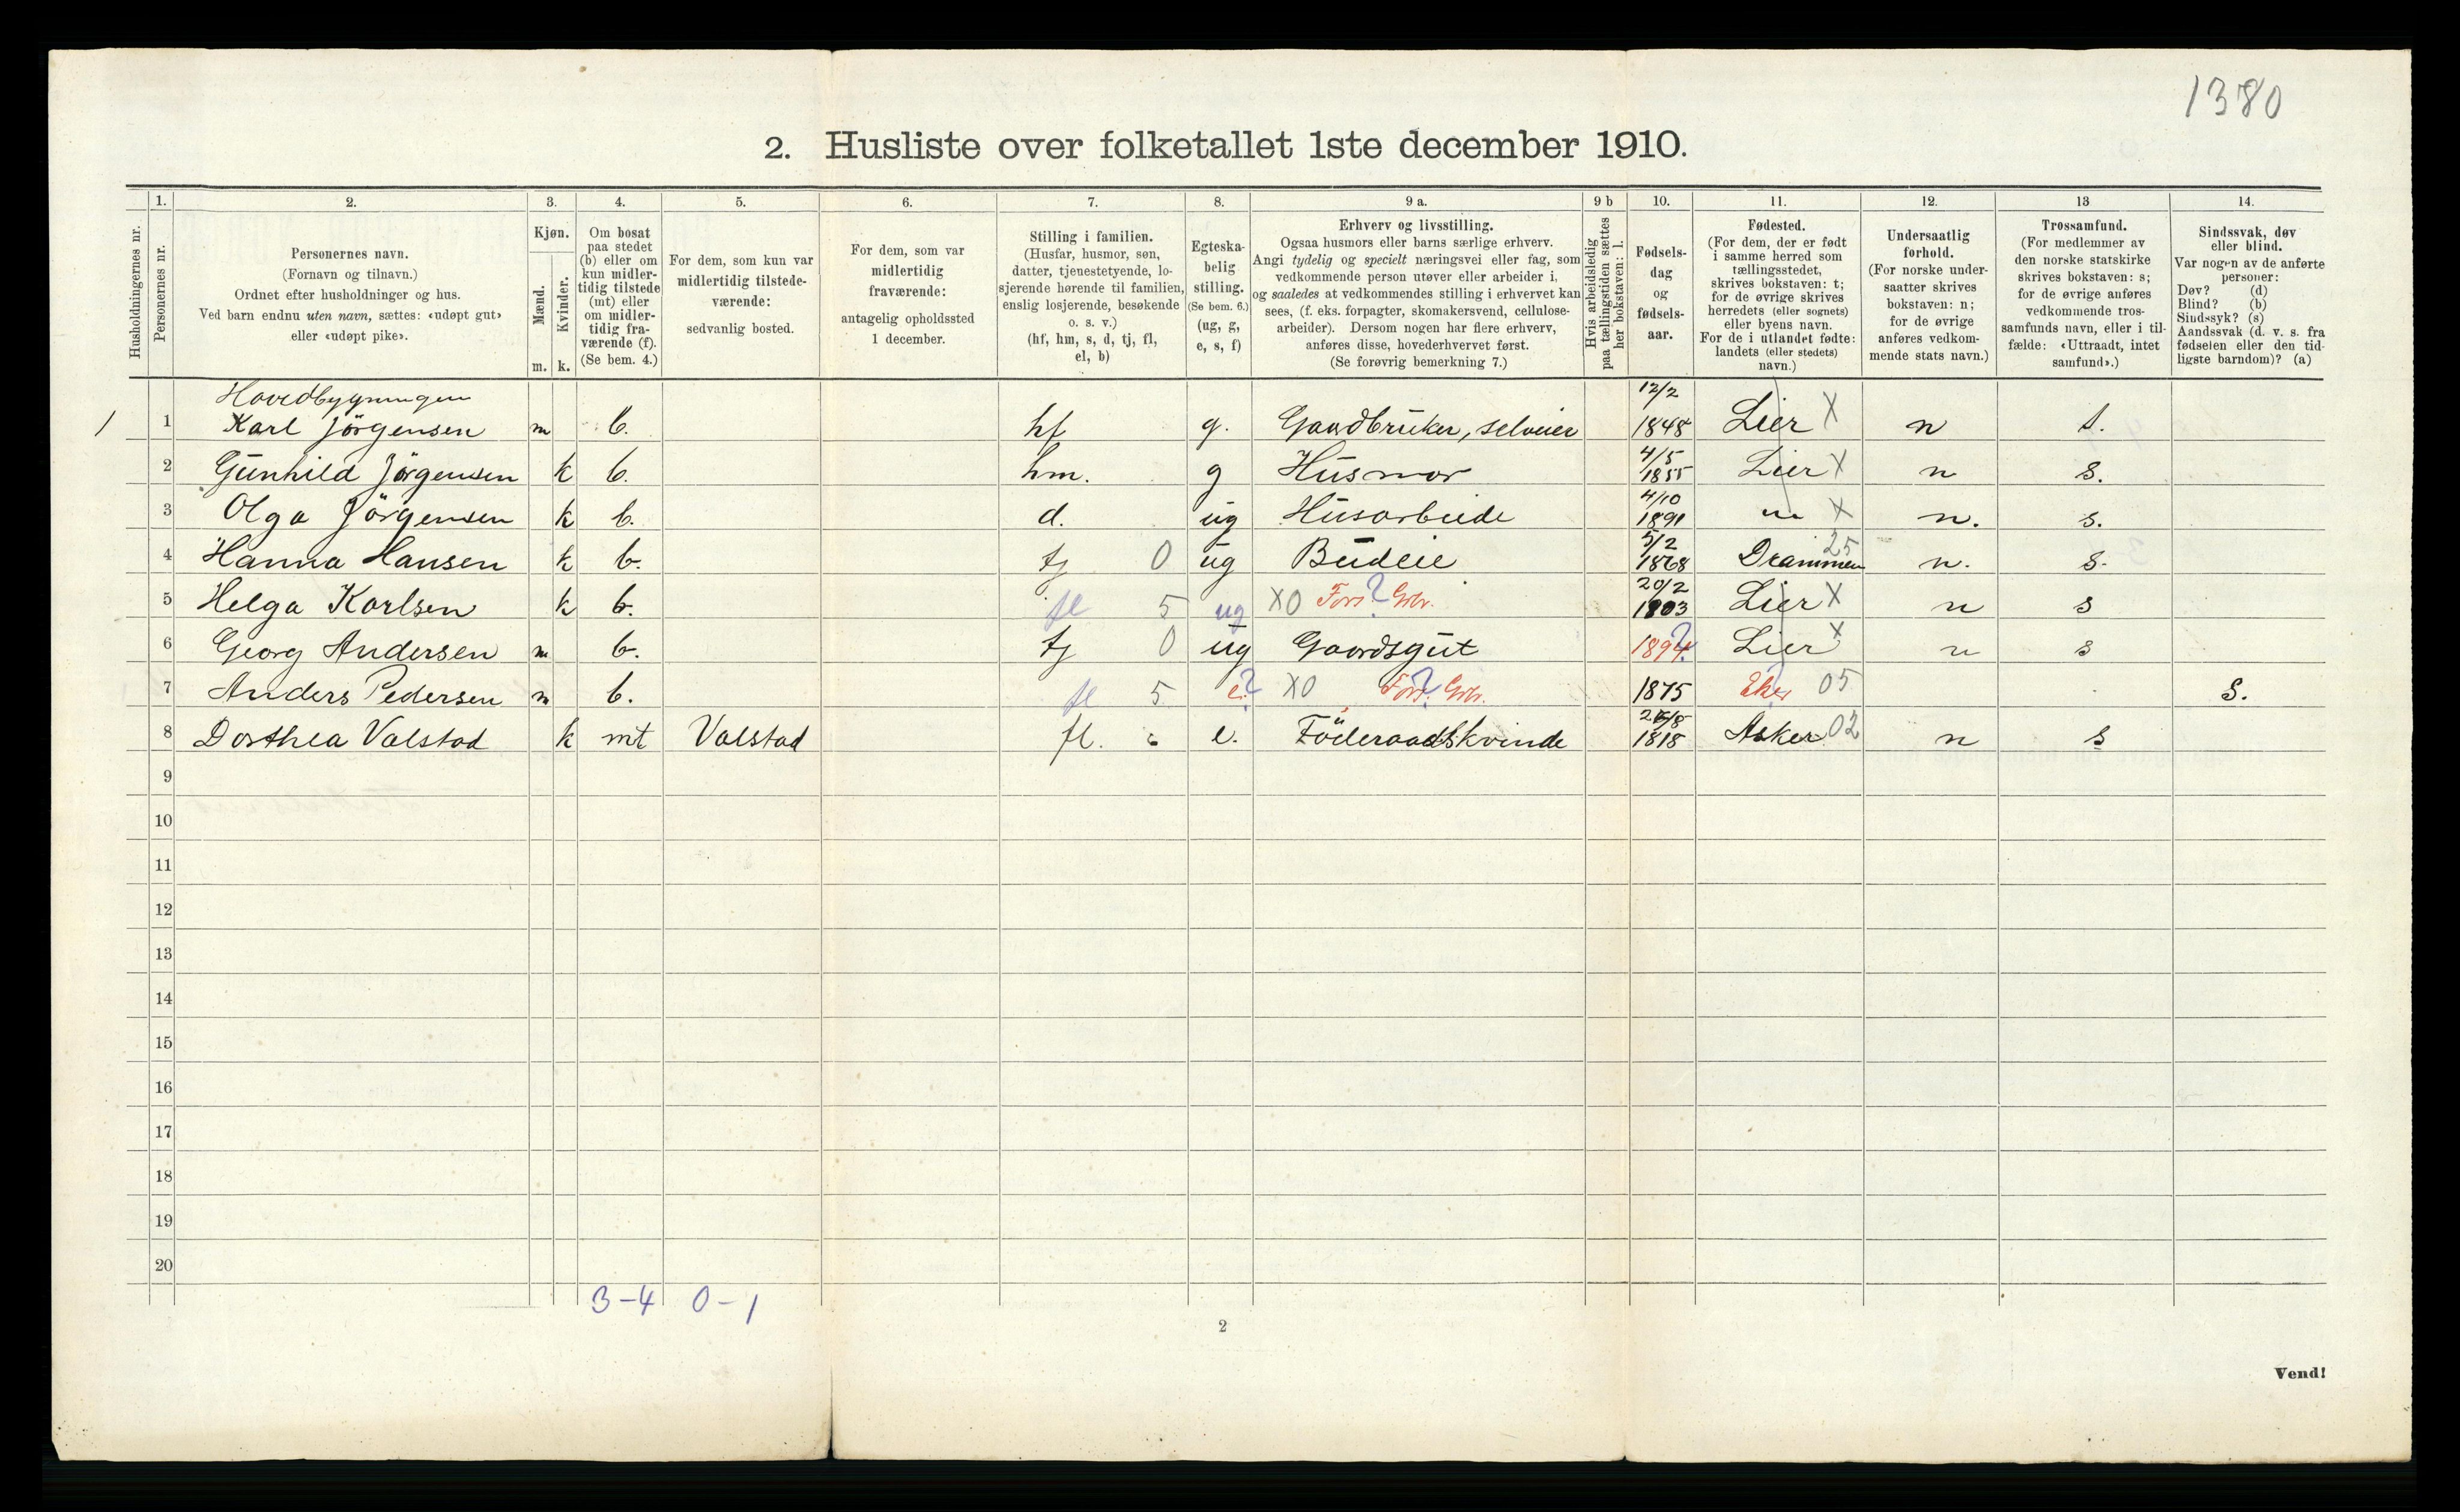 1380
2. Husliste over folketallet 1ste december 1910.
1. 2. 3. 4. 5. 6. 7. 8. 9 a. 9 b 10. 11. 12. 13 14.
Husholdningernes nr.
Personernes nr.
Personernes navn.
(Fornavn og tilnavn.)
Ordnet efter husholdninger og hus.
Ved barn endnu uten navn, sættes: «udøpt gut»
eller «udøpt pike».
Kjøn.
Mænd.
Kvinder.
m. k.
Om bosat
paa stedet
(b) eller om
kun midler-
tidig tilstede
(mt) eller
om midler-
tidig fra-
værende (f).
(Se bem. 4.)
For dem, som kun var
midlertidig tilstede-
værende:
sedvanlig bosted.
For dem, som var
midlertidig
fraværende:
antagelig opholdssted
1 december.
Stilling i familien.
(Husfar, husmor, søn,
datter, tjenestetyende, lo-
sjerende hørende til familien,
enslig losjerende, besøkende
o. s. v.)
(hf, hm, s, d, tj, fl,
el, b)
Egteska-
belig
stilling.
(Se bem. 6.)
(ug, g,
e, s, f)
Erhverv og livsstilling.
Ogsaa husmors eller barns særlige erhverv.
Angi tydelig og specielt næringsvei eller fag, som
vedkommende person utøver eller arbeider i,
og saaledes at vedkommendes stilling i erhvervet kan
sees, (f. eks. forpagter, skomakersvend, cellulose-
arbeider). Dersom nogen har flere erhverv,
anføres disse, hovederhvervet først.
(Se forøvrig bemerkning 7.)
Hvis arbeidsledig
paa tællingstiden sættes
her bokstaven: l.
Fødsels-
dag
og
fødsels-
aar.
Fødested.
(For dem, der er født
i samme herred som
tællingsstedet,
skrives bokstaven: t;
for de øvrige skrives
herredets (eller sognets)
eller byens navn.
For de i utlandet fødte:
landets (eller stedets)
navn.)
Undersaatlig
forhold.
(For norske under-
saatter skrives
bokstaven: n;
for de øvrige
anføres vedkom-
mende stats navn.)
Trossamfund.
(For medlemmer av
den norske statskirke
skrives bokstaven: s;
for de øvrige anføres
vedkommende tros-
samfunds navn, eller i til-
fælde: «Uttraadt, intet
samfund».)
Sindssvak, døv
eller blind.
Var nogen av de anførte
personer:
Døv? (d)
Blind? (b)
Sindssyk? (s)
Aandssvak (d. v. s. fra
fødselen eller den tid-
ligste barndom)? (a)
Hovedbygningen
1 1 Karl Jörgensen m b. hf g. Gaardbruker, selveier 12/2 1848 Lier X n s.
2 Gunhild Jörgensen k b. hm. g Husmor 4/5 1855 Lier X n s.
3 Olga Jörgensen k b. d. ug Husarbeide 4/10 1891 " X n. s.
4 Hanna Hansen k b. tj 0 ug Budeie 5/2 1868 Drammen 25 n. s.
5 Helga Karlsen k b. fl 5 ug XO Fors? Grbr. 20/2 1903 Lier X n s
6 Georg Andersen m b. tj 0 ug Gaardsgut 1894? Lier X n s
7 Anders Pedersen m b. fl 5 e? XO Fors? Grbr. 1875 Eker 05 S.
8 Dorthea Valstad k mt Valstad fl. 6 e. Föderaadskvinde 1818 Asker 02 n s
9
10
11
12
13
14
15
16
17
18
19
20
3-4 0-1
2
Vend!